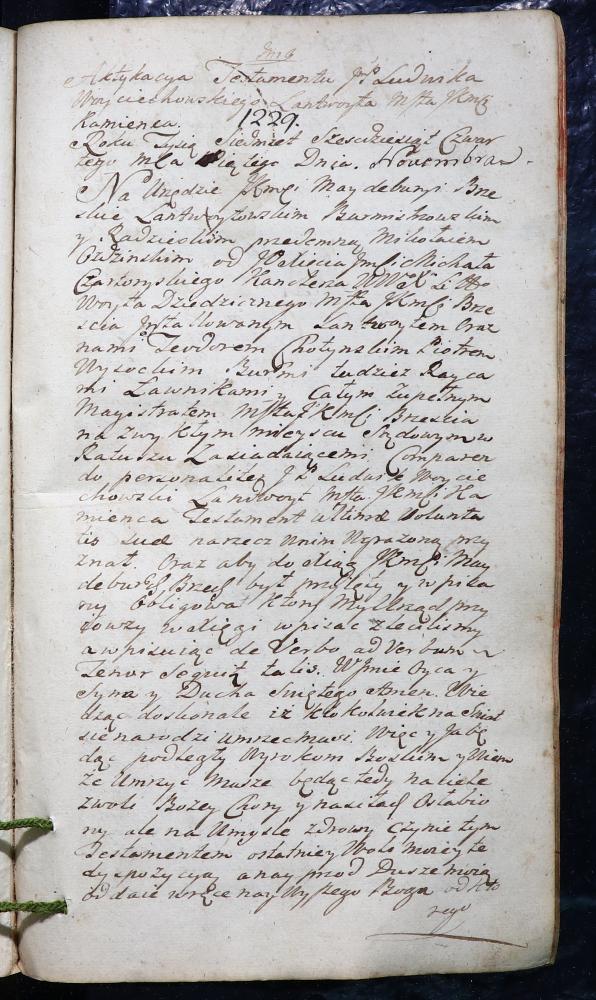 Aktykacya Testamentu JP Ludwika
Woyciechowskiego Lantwoyta Msta JKMci
Kamienca.
1229.
Roku Tysiąc Siedmset Szescdziesiąt Czwar
tego Mca Piątego Dnia Novembra
Na Urzędzie JKMci Maydeburyi Brze
skie Lantwoytowskim Burmistrzowskim
y Radzieckim przedemną Mikołaiem
od JO Xcia Jmci Michała
Czartoryskiego Kanclerza WWo X Litto
Woyta Dziedzicznego Msta JKMci Brze
scia Lantwoytem oraz
nami Teodorem Chotynskim Piotrem
Wysockim Burmi tudziesz Rayca
mi Ławnikami y całym zupełnym
Magistratem Msta JKMci Brzescia
na zwykłym mieyscu Sądowym w
Ratuszu Zasiadaiącemi Comparen
do personaliter JP Ludwik Woycie
chowski Lantwoyt Msta JKMci Ka
mienca Testament ultimæ Volunta
tis suæ na rzecz w nim wyrażoną przy
znał. Oraz aby do xiąg JKMci May
deburg Brzes był przyięty y wpisa
ny obligował który My Urząd przy
iowszy w xięgi wpisac zleciliśmy
a wpisuiąc de Verbo ad Verbum
Tenor Sequit talis. W Jmie Oyca y
Syna y Ducha Swiętego Amen. Wie
dząc doskonale iż ktokolwiek na Swiat
sie narodzi umrzec musi Więc y Ja bę
dąc podległy wyrokom Boskim y Wiem
że Umrzyc Musze będąc tedy na ciele
z woli Bozey Chory y na siłach Osłabio
ny ale na Umysle zdrowy czynie tym
Testamentem ostatniey Wole moiey te
dyspozycyą a nayprzod Dusze moią
oddaie w ręce naywyższego Boga od kto
rego